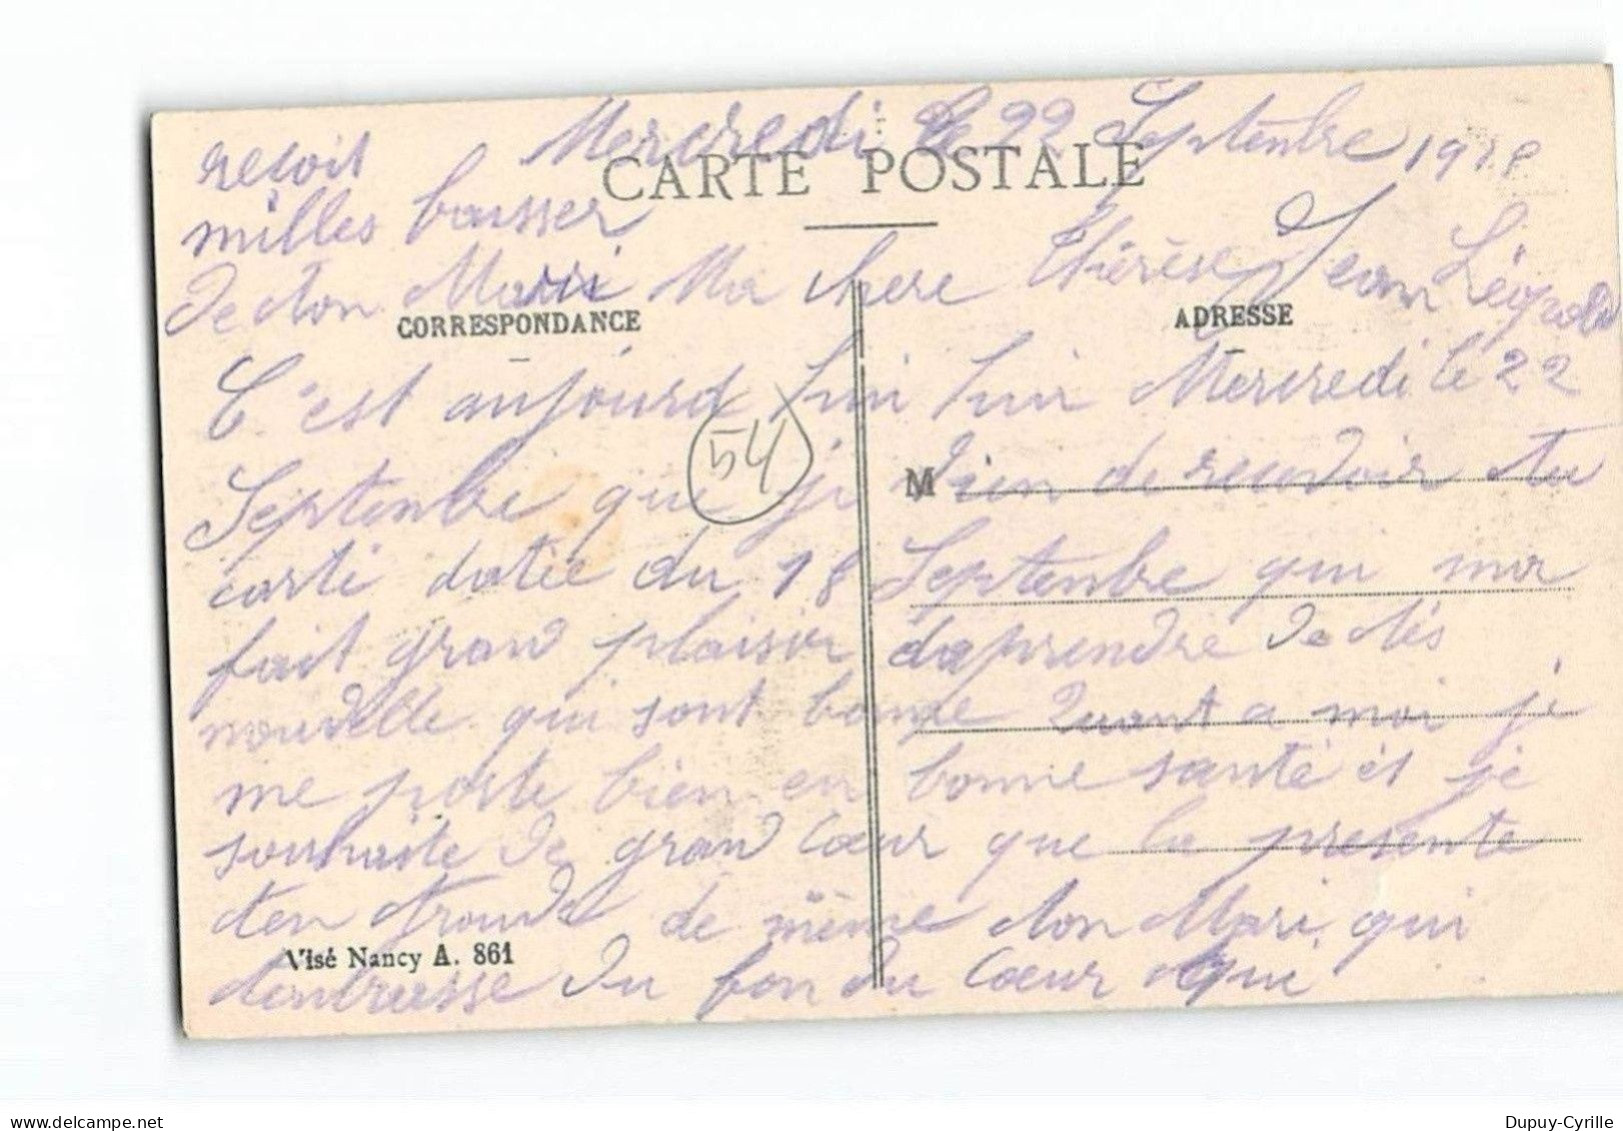 Mercredi le 22 Septenbre 191
CARTE POSTALE
resoit
milles bousser
de ton Mari Ma chere Thérèse Jean Léopold
CORRESPONDANCE
ADRESSE
C'est aujourd hui hui Mercredi le 22
54
Septenbre que je vien de recevoir ta
M
carte datée du 18 Septenbre qui ma
fait grand plaisir daprendre de tés
nouvelle qui sont bonne Quant a moi je
me porte bien en bonne santé et je
souhaite de grand cœur que la présente
ten trouve de même ton Mari qui
Visé Nancy A. 861
tenbrasse du fon du Cœur que
delcampe.net
Dupuy-Cyrille